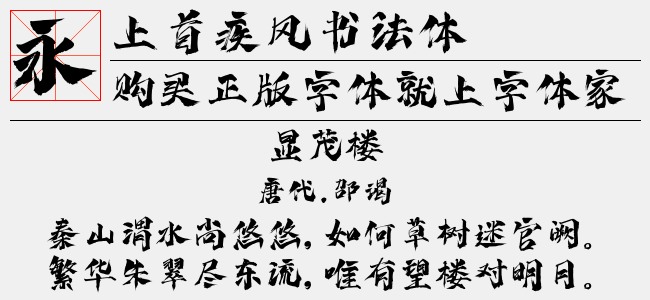 永
上首疾风书法体
购买正版字体就上字体家
显茂楼
唐代.邵谒
秦山渭水尚悠悠,如何草树迷宫阙。
繁华朱翠尽东流,唯有望楼对明月。